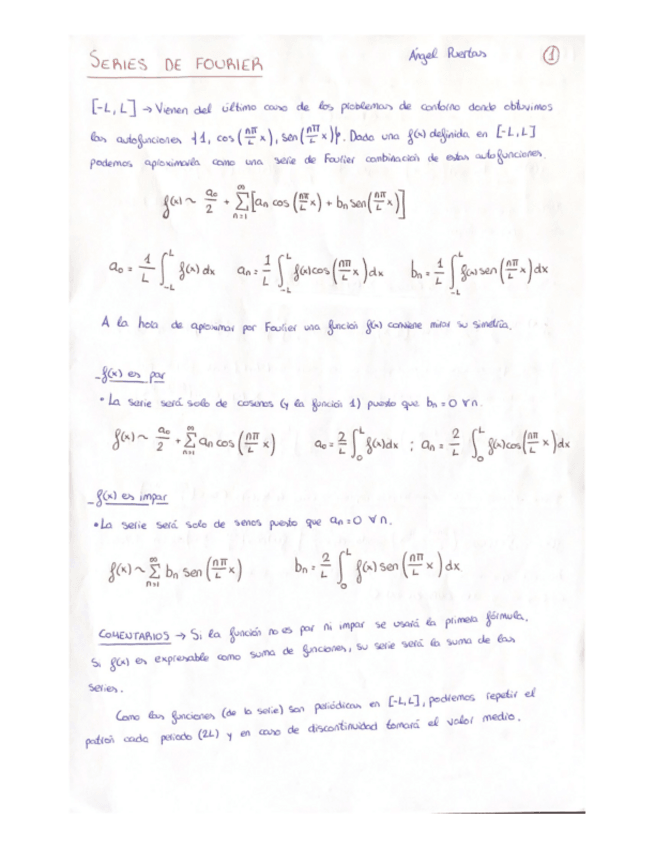 SERIES DE FOURIER
Ángel Puertas
1
[-L, L] → Vienen del último caso de los problemas de contorno donde obtuvimos
las autofunciones {1, cos(nπ/L x), sen(nπ/L x)}. Dada una f(x) definida en [-L, L]
podemos aproximarla como una serie de Fourier combinación de estas autofunciones.
f(x) ~ a₀/2 + Σ_{n=1}^{∞} [aₙ cos(nπ/L x) + bₙ sen(nπ/L x)]
a₀ = 1/L ∫_{-L}^{L} f(x) dx   aₙ = 1/L ∫_{-L}^{L} f(x) cos(nπ/L x) dx   bₙ = 1/L ∫_{-L}^{L} f(x) sen(nπ/L x) dx
A la hora de aproximar por Fourier una función f(x) conviene mirar su simetría.
- f(x) es par
• La serie será solo de cosenos (y la función 1) puesto que bₙ = 0 ∀n.
f(x) ~ a₀/2 + Σ_{n=1}^{∞} aₙ cos(nπ/L x)   a₀ = 2/L ∫_0^L f(x) dx ; aₙ = 2/L ∫_0^L f(x) cos(nπ/L x) dx
- f(x) es impar
• La serie será solo de senos puesto que aₙ = 0 ∀n.
f(x) ~ Σ_{n=1}^{∞} bₙ sen(nπ/L x)   bₙ = 2/L ∫_0^L f(x) sen(nπ/L x) dx
COMENTARIOS → Si la función no es par ni impar se usará la primera fórmula.
Si f(x) es expresable como suma de funciones, su serie será la suma de las
series.
Como las funciones (de la serie) son periódicas en [-L, L], podremos repetir el
patrón cada periodo (2L) y en caso de discontinuidad tomará el valor medio.